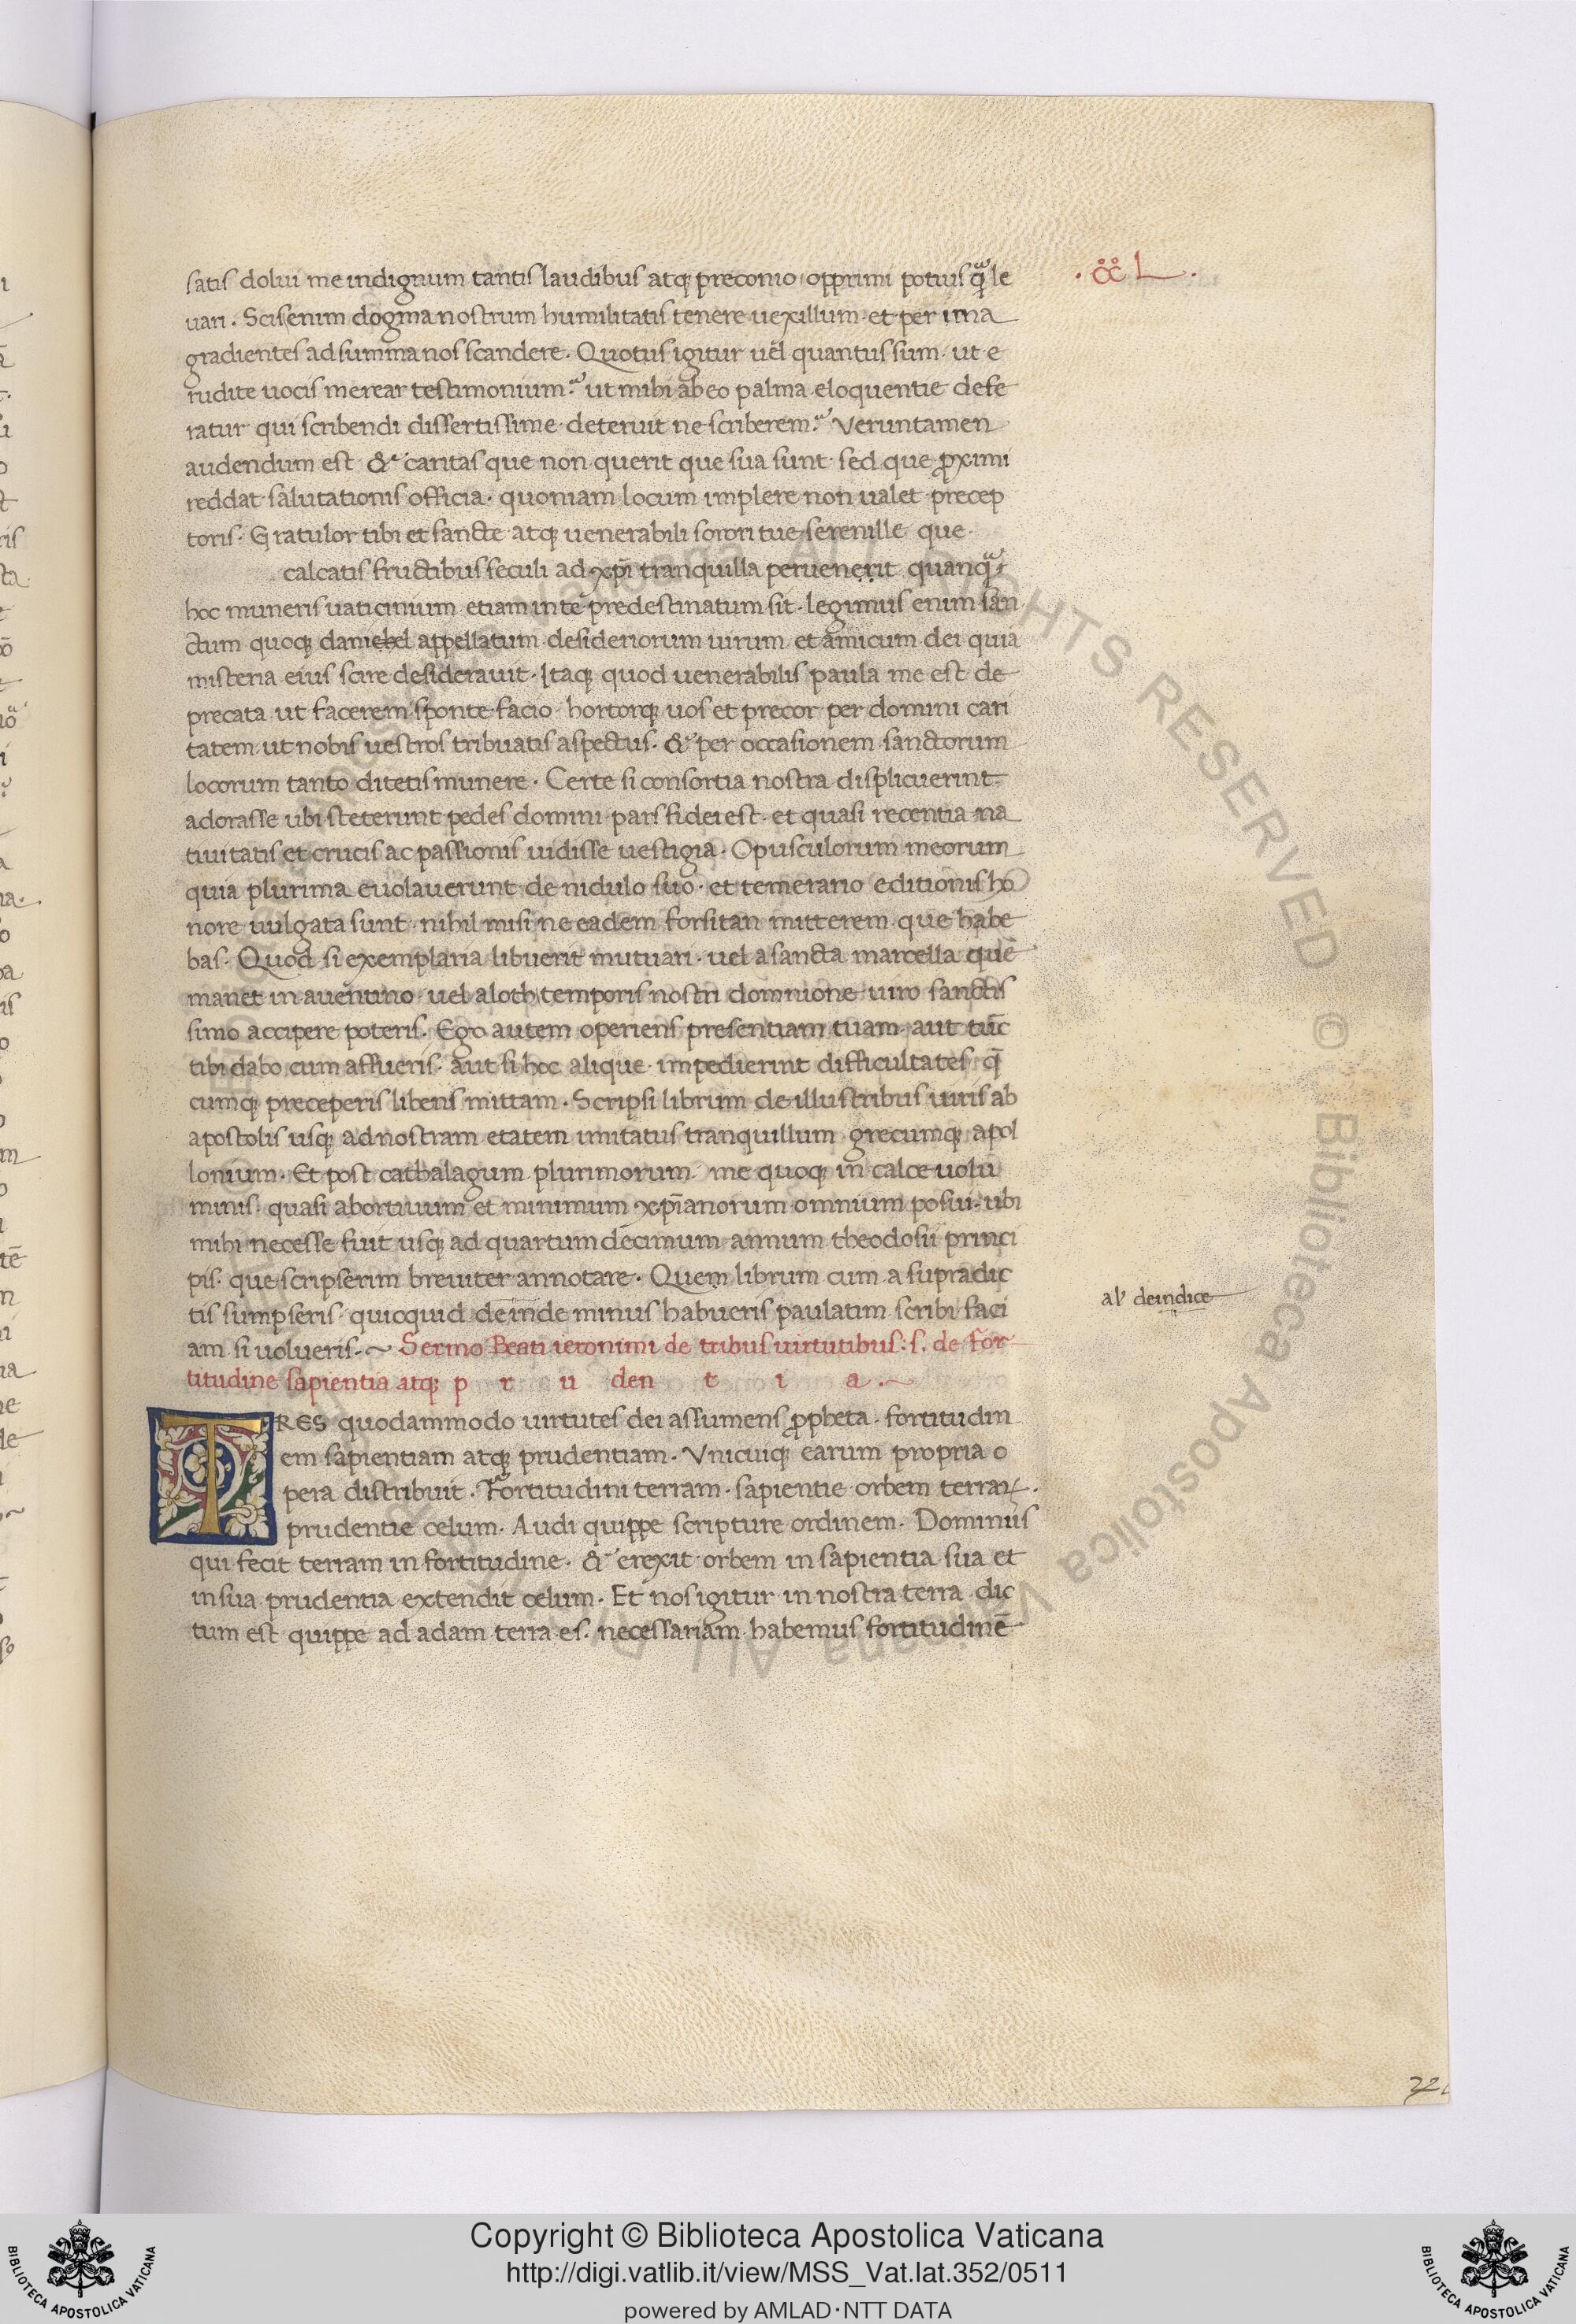 satis dolui me indignum tantis laudibus atq; preconio opprimi potius qᷓ le
.cͦcͦ L.
uari. Scis enim dogma nostrum humilitatis tenere uexillum et per ima
gradientes ad summa nos scandere. Quotus igitur uel quantus sum ut e
rudite uocis merear testimonium? ut mihi ab eo palma eloquentie defe
ratur qui scribendi dissertissime deteruit ne scriberem? Veruntamen
audendum est & caritas que non querit que sua sunt sed que proximi
reddat salutationis officia. quoniam locum implere non ualet precep
toris. Gratulor tibi et sancte atq; uenerabili sorori tue serenille que
calcatis fructibus seculi ad xp̄i tranquilla peruenerit quanqᷓ
hoc muneris uaticinium etiam in te predestinatum sit. legimus enim san
ctum quoq; daniehel appellatum desideriorum uirum et amicum dei quia
misteria eius scire desiderauit. Itaq; quod uenerabilis paula me est de
precata ut facerem sponte facio hortorq; uos et precor per domini cari
tatem ut nobis uestros tribuatis aspectus. & per occasionem sanctorum
locorum tanto ditetis munere. Certe si consortia nostra displicuerint
adorasse ubi steterunt pedes domini pars fidei est. et quasi recentia na
tiuitatis et crucis ac passionis uidisse uestigia. Opusculorum meorum
quia plurima euolauerunt de nidulo suo. et temerario editionis ho
nore uulgata sunt nihil misi ne eadem forsitan mitterem que habe
bas. Quod si exemplaria libuerit mutuari. uel a sancta marcella que
manet in auentino uel a loth temporis nostri domnione uiro sanctis
simo accipere poteris. Ego autem operiens presentiam tuam aut tūc
tibi dabo cum affueris. aut si hoc alique impedierint difficultates q̄
cumq; preceperis libens mittam. Scripsi librum de illustribus uiris ab
apostolis usq; ad nostram etatem imitatus tranquillum grecumq; apol
lonium. Et post cathalagum plurimorum me quoq; in calce uolu
minis quasi abortiuum et minimum xp̄ianorum omnium posui. ubi
mihi necesse fuit usq; ad quartum decimum annum theodosii princi
pis. que scripserim breuiter annotare. Quem librum cum a supradic
tis sumpseris quicquid deinde minus habueris paulatim scribi faci
al' deindice
am si uolueris.~ Sermo Beati ieronimi de tribus uirtutibus: s. de for
titudine sapientia atq; p r u den t i a.~
TRES quodammodo uirtutes dei assumens propheta. fortitudin
em sapientiam atq; prudentiam. Vnicuiq; earum propria o
pera distribuit. Fortitudini terram. sapientie orbem terraꝝ.
prudentie celum. Audi quippe scripture ordinem. Dominus
qui fecit terram in fortitudine. & erexit orbem in sapientia sua et
in sua prudentia extendit celum. Et nos igitur in nostra terra dic
tum est quippe ad adam terra es. necessariam habemus fortitudinē
Copyright © Biblioteca Apostolica Vaticana
http://digi.vatlib.it/view/MSS_Vat.lat.352/0511
powered by AMLAD·NTT DATA